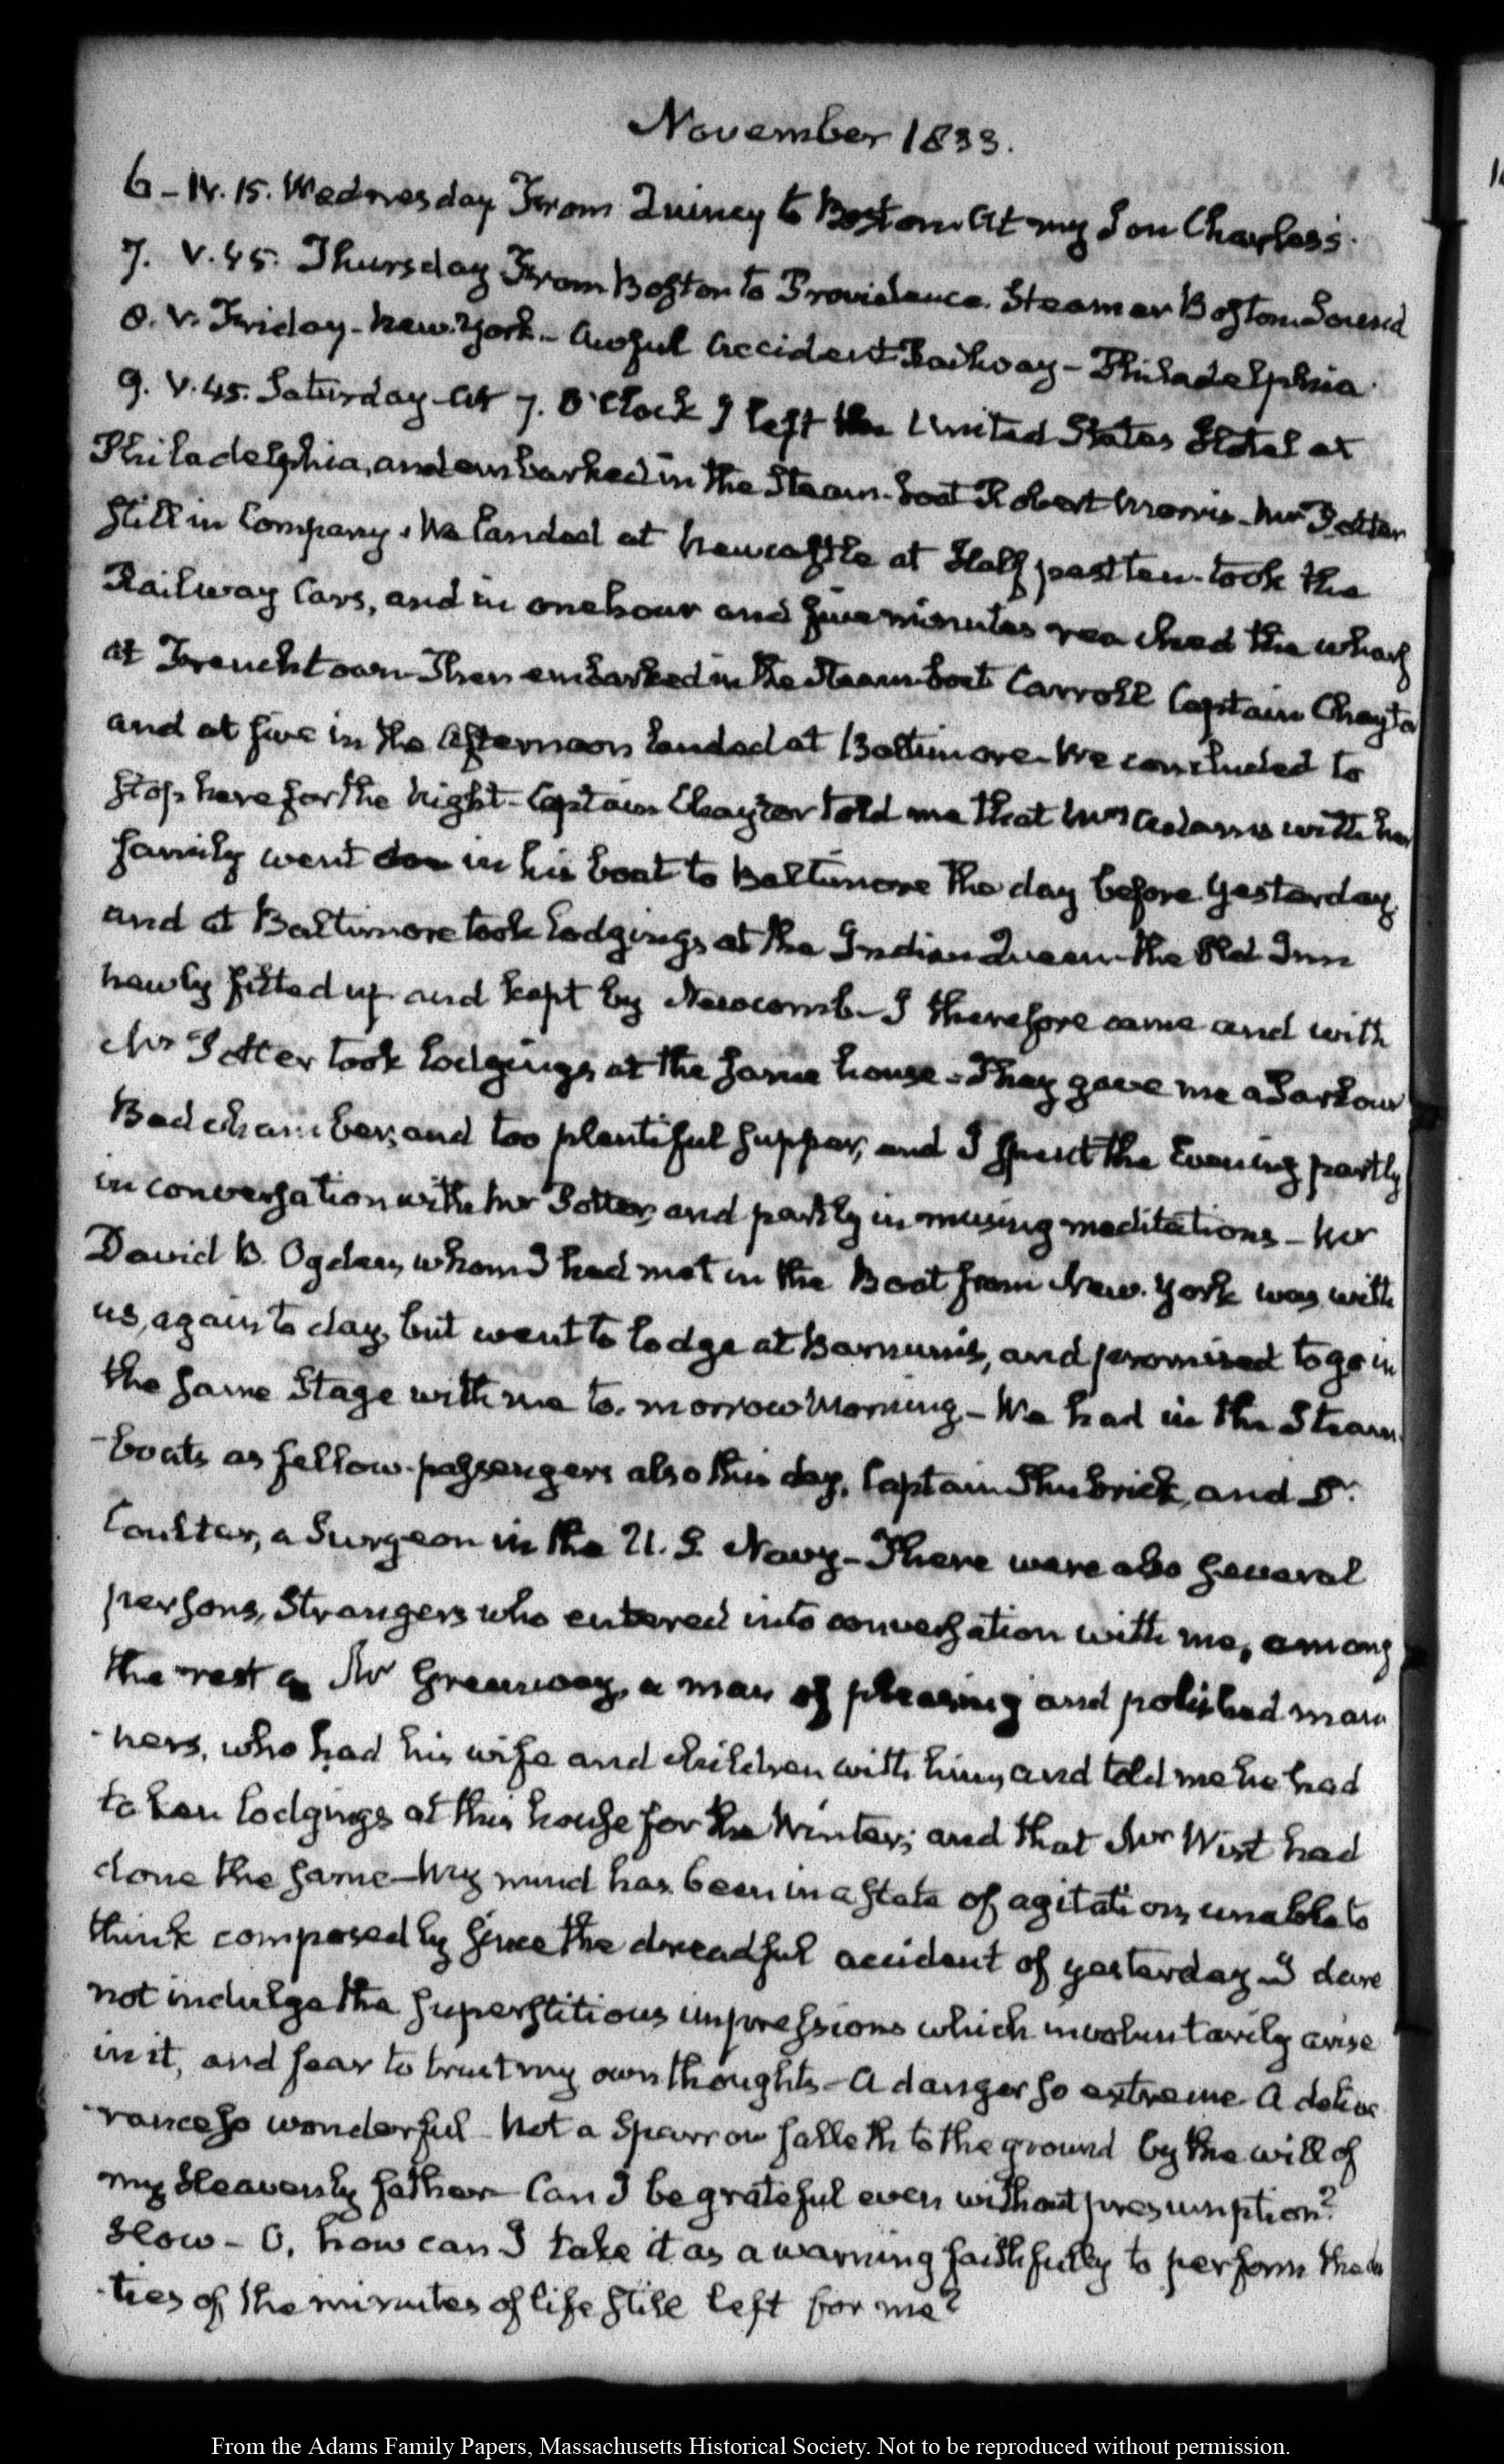 November 1833.
6 - IV. 15. Wednesday From Quincy to Boston. At my Son Charles's.
7. V. 45. Thursday From Boston to Providence. Steamer Boston. Sound
8. V. Friday - New York - Awful Accident Railway - Philadelphia
9. V. 45. Saturday - At 7. O'Clock I left the United States Hotel at
Philadelphia, and embarked in the Steam-boat Robert Morris - Mr Potter
still in Company. We landed at Newcastle at Half past ten - took the
Railway Cars, and in one hour and five minutes reached the wharf
at Frenchtown - Then embarked in the Steam-boat Carroll Captain Chayto
and at five in the Afternoon landed at Baltimore - We concluded to
stop here for the Night - Captain Chaytor told me that Mrs Adams with her
family went in his boat to Baltimore the day before yesterday,
and at Baltimore took lodgings at the Indian Queen - the Old Inn
newly fitted up and kept by Newcomb - I therefore came and with
Mr Potter took lodgings at the same house - They gave me a Parlour
Bed chamber, and too plentiful supper, and I spent the Evening partly
in conversation with Mr Potter, and partly in musing meditations - Mr
David B. Ogden, whom I had met in the Boat from New-York was with
us, again to day, but went to lodge at Barnum's, and promised to go in
the same Stage with me to-morrow Morning - We had in the Steam
-boats as fellow-passengers also this day, Captain Shubrick, and Dr
Coulter, a Surgeon in the U. S. Navy - There were also several
persons, Strangers who entered into conversation with me, among
the rest a Mr Greenway, a man of pleasing and polished man
-ners, who had his wife and children with him, and told me he had
taken lodgings at this house for the Winter; and that Mr Wirt had
done the same - My mind has been in a state of agitation, unable to
think composedly since the dreadful accident of yesterday - I dare
not indulge the superstitious impressions which involuntarily arise
in it, and fear to trust my own thoughts - A danger so extreme - A delive
-rance so wonderful - Not a Sparrow falleth to the ground by the will of
my Heavenly father - Can I be grateful even without presumption?
How - O, how can I take it as a warning faithfully to perform the du
-ties of the minutes of life still left for me?
From the Adams Family Papers, Massachusetts Historical Society. Not to be reproduced without permission.